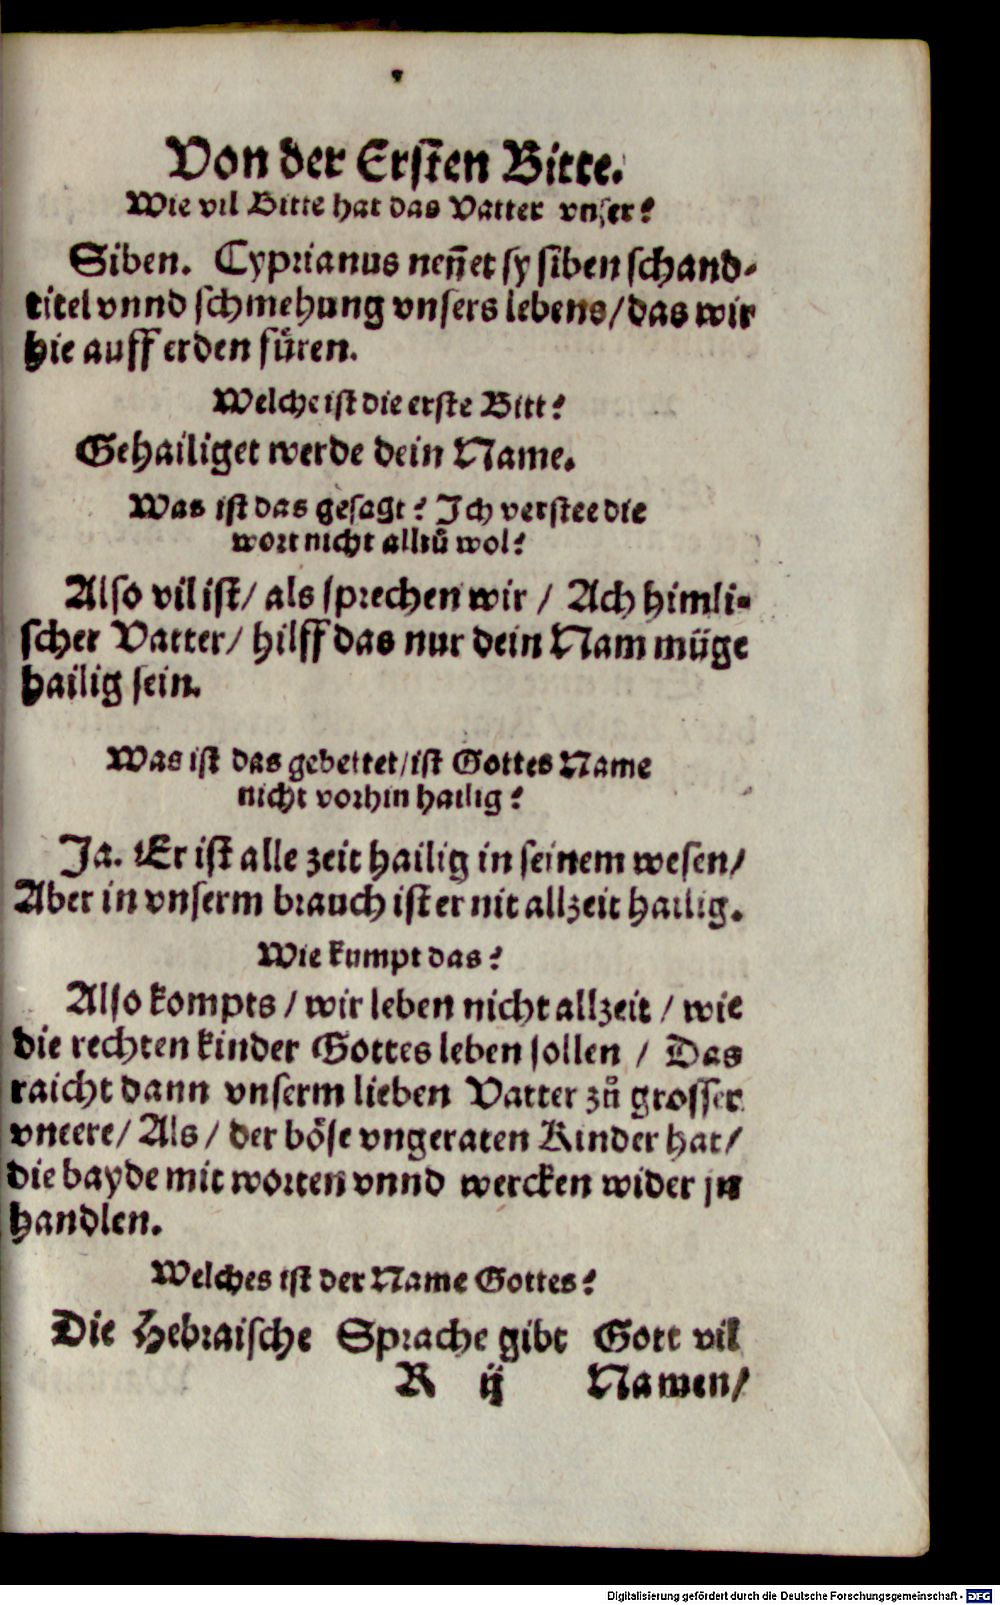 Von der Ersten Bitte.
Wie vil Bitte hat das Vatter vnser?
Siben. Cyprianus neñet sy siben schand-
titel vnnd schmehung vnsers lebens/das wir
hie auff erden fuͤren.
Welche ist die erste Bitt?
Gehailiget werde dein Name.
Was ist das gesagt? Ich verstee die
wort nicht allzuͦ wol?
Also vil ist/ als sprechen wir / Ach himli-
scher Vatter/ hilff das nur dein Nam müge
hailig sein.
Was ist das gebettet/ist Gottes Name
nicht vorhin hailig?
Ja. Er ist alle zeit hailig in seinem wesen/
Aber in vnserm brauch ist er nit allzeit hailig.
Wie kumpt das?
Also kompts / wir leben nicht allzeit / wie
die rechten kinder Gottes leben sollen / Das
raicht dann vnserm lieben Vatter zuͦ grosser
vneere/ Als/ der boͤse vngeraten Kinder hat/
die bayde mit worten vnnd wercken wider jn
handlen.
Welches ist der Name Gottes?
Die Hebraische Sprache gibt Gott vil
K ij Namen/
Digitalisierung gefördert durch die Deutsche Forschungsgemeinschaft - DFG